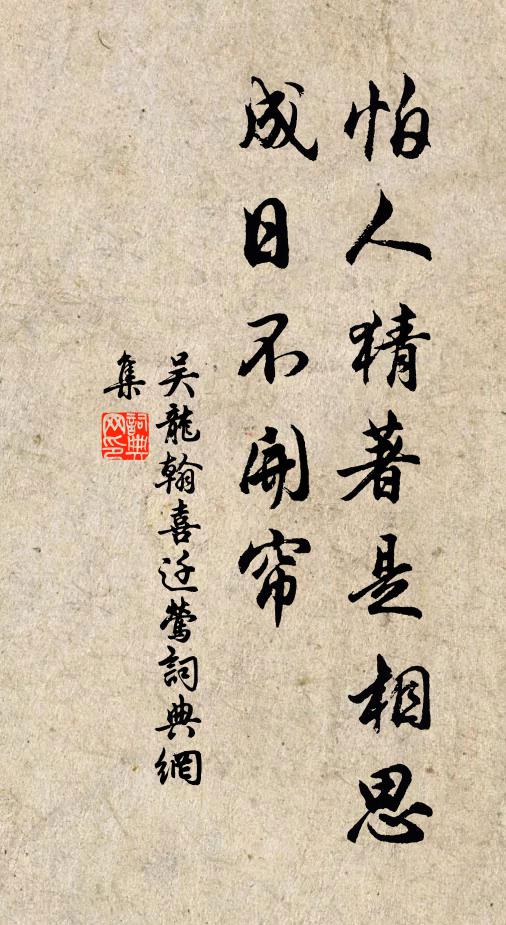 怕人猜著是相思
成日不開帘
吳龍翰喜迁鶯詞典網
集
詞典
网印